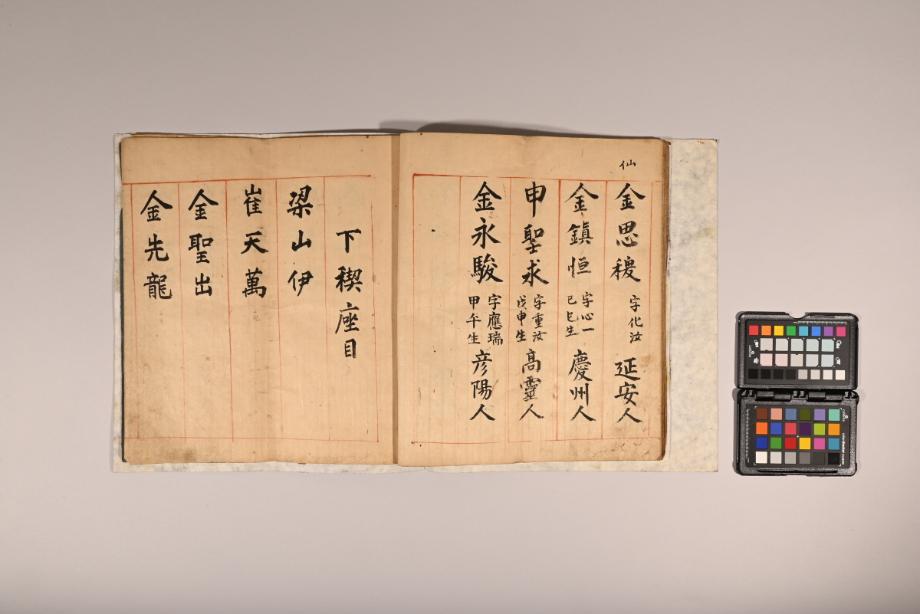 仙
金思稷 字化汝 延安人
金鎭恒 字心一 己巳生 慶州人
申聖求 字重汝 戊申生 高靈人
金永駿 字應瑞 甲午生 彦陽人
下稧座目
梁山伊
崔天萬
金聖出
金先龍